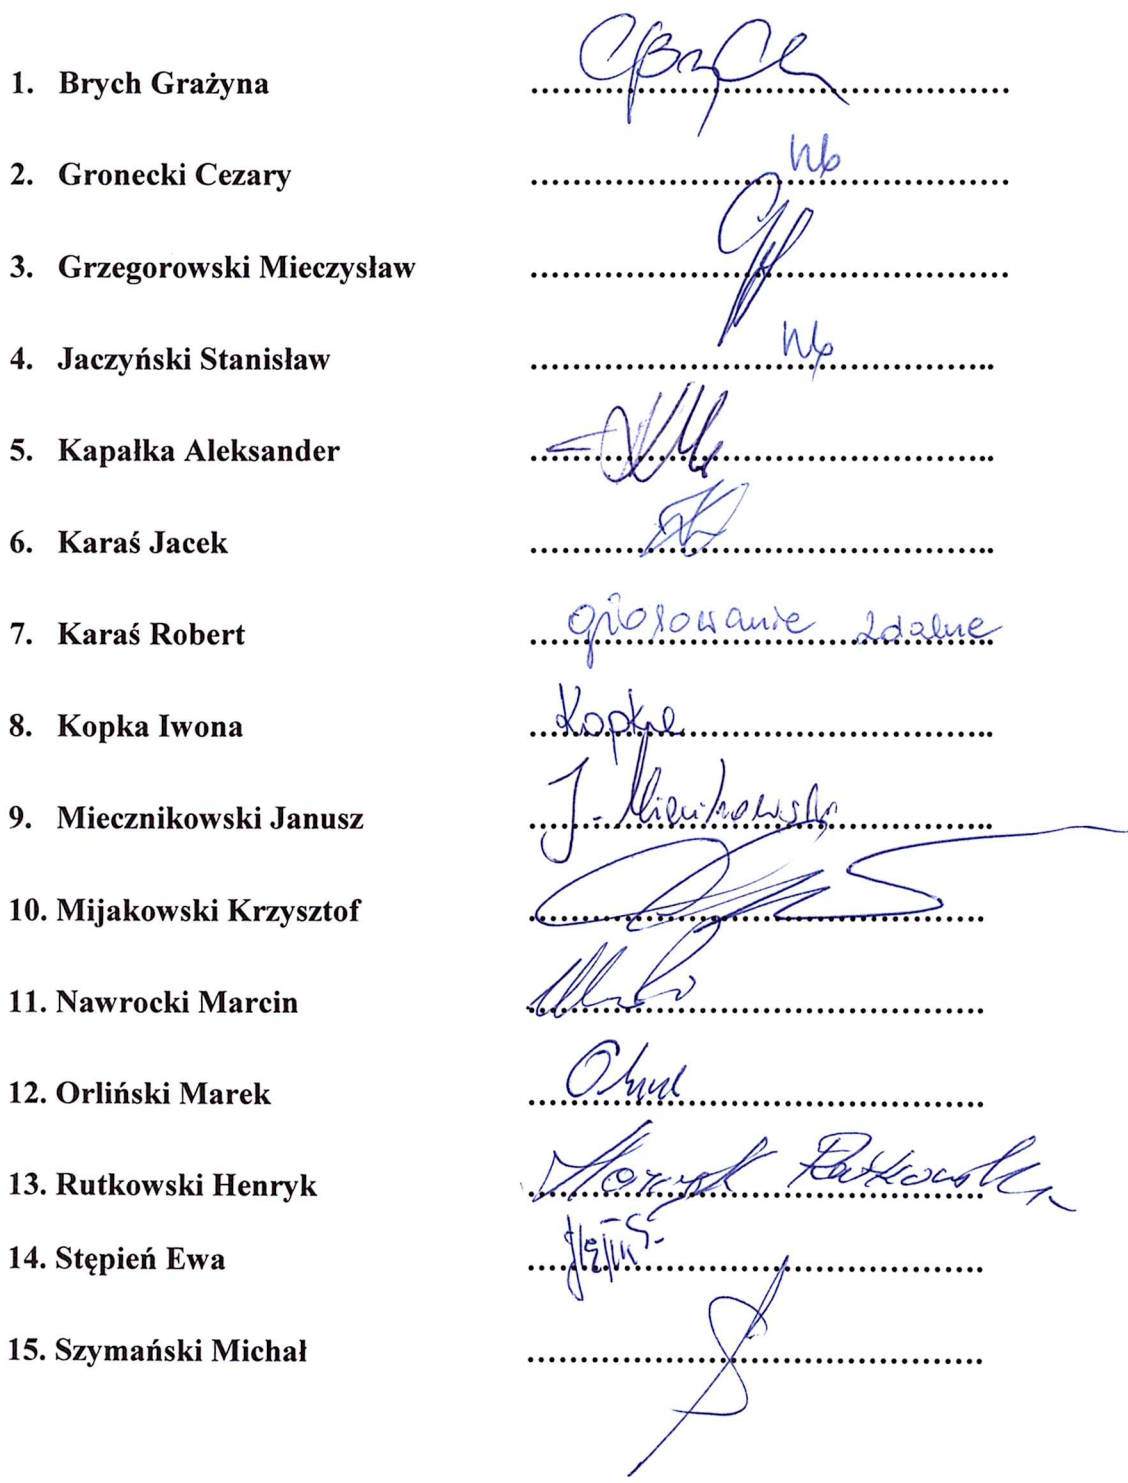 1. Brych Grażyna ..........
2. Gronecki Cezary .......... Nb
3. Grzegorowski Mieczysław ..........
4. Jaczyński Stanisław .......... Nb
5. Kapałka Aleksander ..........
6. Karaś Jacek ..........
7. Karaś Robert .......... głosowanie zdalne
8. Kopka Iwona .......... Kopka
9. Miecznikowski Janusz .......... J. Miecznikowski
10. Mijakowski Krzysztof ..........
11. Nawrocki Marcin ..........
12. Orliński Marek ..........
13. Rutkowski Henryk .......... Henryk Rutkowski
14. Stępień Ewa ..........
15. Szymański Michał ..........